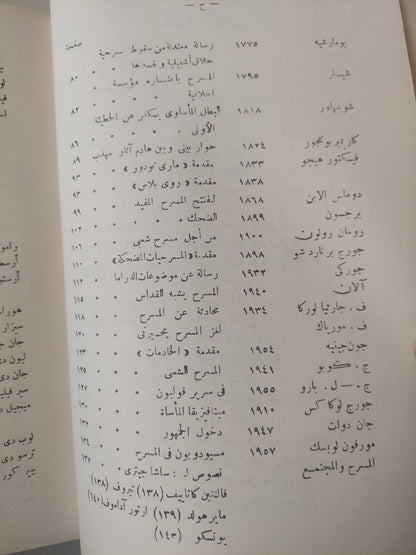 — ح —
صفحة
بومارشيه ١٧٧٥ رسالة معتدلة من سقوط مسرحية
حلاق أشبيلية ونقدها
شيلر ١٧٩٥ المسرح باعتباره مؤسسة ٨٠
أخلاقية
شوبنهاور ١٨١٨ البطل المأساوى يكفر عن الخطيئة ٨٢
الأولى
كازيمير بونجور ١٨٢٤ حوار بينى وبين هادم آثار مهذب ٨٦
فيكتور هيجو ١٨٣٣ مقدمة « مارى تودور » ٨٩
١٨٣٨ مقدمة « روى بلاس » ٩٣
دوماس الابن ١٨٦٨ لنفتتح المسرح المفيد ٩٣
برجسون ١٨٩٩ الضحك
رومان رولون ١٩٠٠ من أجل مسرح شعبى ١٠٦
جورج برنارد شو ١٨٩٨ مقدمة « المسرحيات المضحكة » ١١٠
جوركى ١٩٣٢ رسالة عن موضوعات الدراما ١١٢
آلان ١٩٤٠ المسرح يشبه القداس ١١٥
ف . جارثيا لوركا ١٩٣٤ محادثة عن المسرح ١١٨
ف . مورياك لغز المسرح يحيرنى ١٢٠
جون جينيه ١٩٥٤ مقدمة « الخادمات » ١٢٣
ج . كوبو ١٩٤١ المسرح الشعبى ١٢٥
ج . ل . بارو ١٩٥٥ فى سرير فولبون ١٢٧
جورج لوكاكس ١٩١٠ ميتافيزيقا المأساة ١٣٠
جان دوات ١٩٤٧ دخول الجمهور ١٣٢
مورفون لوبسك ١٩٥٧ مسيودوبون فى المسرح ١٣٤
المسرح والمجتمع نصوص لـ : ساشا جيترى ١٣٧
فالنتين كاتاييف (١٣٨) تيروف (١٣٨)
ماير هولد (١٣٩) ارتور آداموف (١٤٠)
يونسكو (١٤٣)